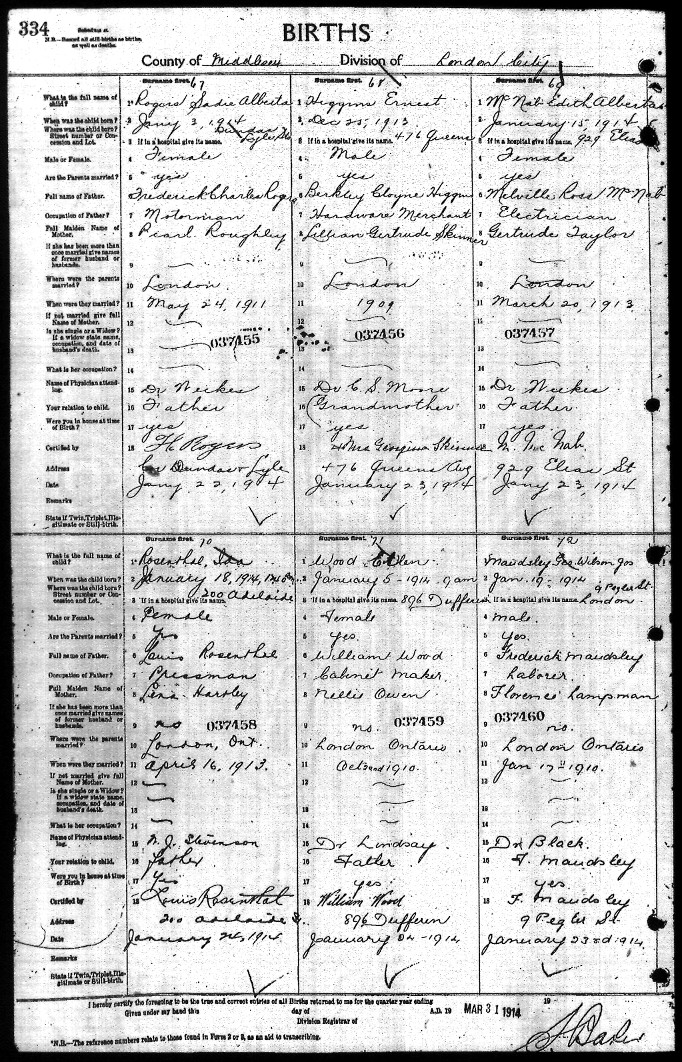 334
Schedule A.
N.B.—Record all still-births as births, as well as deaths.
BIRTHS
County of Middlesex Division of London City
Surname first. 67
Surname first. 68
Surname first. 69
What is the full name of child?
1 Rogers Sadie Alberta
1 Higgins Ernest
1 McNab Edith Alberta
When was the child born?
2 Jany 3, 1914
2 Dec 25, 1913
2 January 15, 1914
Where was the child born? Street number or Concession and Lot.
Dundas
3 If in a hospital give its name.
3 If in a hospital give its name. 476 Queens
3 If in a hospital give its name. 929 Elias
Male or Female.
4 Female
4 Male
4 Female
Are the Parents married?
5 yes
5 yes
5 yes
Full name of Father.
6 Frederick Charles Rogers
6 Berkley Cloyne Higgins
6 Melville Ross McNab
Occupation of Father?
7 Motorman
7 Hardware Merchant
7 Electrician
Full Maiden Name of Mother.
8 Pearl Roughley
8 Lillian Gertrude Skinner
8 Gertrude Taylor
If she has been more than once married give names of former husband or husbands.
9
9
9
Where were the parents married?
10 London
10 London
10 London
When were they married?
11 May 24, 1911
11 1909
11 March 20, 1913
If not married give full Name of Mother.
12
12
12
Is she single or a Widow? If a widow state name, occupation, and date of husband's death.
13 037455
13 037456
13 037457
What is her occupation?
14
14
14
Name of Physician attending.
15 Dr Weekes
15 Dr C. S. Moore
15 Dr Weekes
Your relation to child.
16 Father
16 Grandmother
16 Father
Were you in house at time of Birth?
17 yes
17 yes
17 yes
Certified by
18 F H. Rogers
18 Mrs Georgina Skinner
18 M. McNab
Address
Cor Dundas & Lyle
476 Queens Ave
929 Elias St
Date
Jany 22, 1914
January 23, 1914
Jany 23, 1914
Remarks
State if Twin, Triplet, Illegitimate or Still-birth.
Surname first. 70
Surname first. 71
Surname first. 72
What is the full name of child?
1 Rosenthal, Ida
1 Wood Ellen
1 Maudsley Geo. Wilson Jos
When was the child born?
2 January 18, 1914,
2 January 5 - 1914. 9 am
2 Jan. 19 - 1914
Where was the child born? Street number or Concession and Lot.
9 Pegler St.
3 If in a hospital give its name. 200 Adelaide
3 If in a hospital give its name. 896 Dufferin
3 If in a hospital give its name. London.
Male or Female.
4 Female
4 Female
4 Male.
Are the Parents married?
5 Yes
5 yes.
5 yes.
Full name of Father.
6 Louis Rosenthal
6 William Wood
6 Frederick Maudsley
Occupation of Father?
7 Pressman
7 Cabinet Maker.
7 Laborer.
Full Maiden Name of Mother.
8 Lena Hartley
8 Nellie Owen
8 Florence Lampman
If she has been more than once married give names of former husband or husbands.
9 no 037458
9 no. 037459
9 037460 no.
Where were the parents married?
10 London, Ont.
10 London Ontario
10 London Ontario
When were they married?
11 April 16, 1913.
11 Oct 22nd 1910.
11 Jan 17th 1910.
If not married give full Name of Mother.
12
12
12
Is she single or a Widow? If a widow state name, occupation, and date of husband's death.
13
13
13
What is her occupation?
14
14
14
Name of Physician attending.
15 N. J. Stevenson
15 Dr Lindsay
15 Dr Black.
Your relation to child.
16 Father
16 Father
16 F. Maudsley
Were you in house at time of Birth?
17 Yes
17 yes
17 yes.
Certified by
18 Louis Rosenthal
18 William Wood
18 F. Maudsley
Address
200 Adelaide St.
896 Dufferin
9 Pegler St
Date
January 24, 1914.
January 24 - 1914
January 23rd 1914
Remarks
State if Twin, Triplet, Illegitimate or Still-birth.
I hereby certify the foregoing to be the true and correct entries of all Births returned to me for the quarter ending 19
Given under my hand this day of A.D. 19 MAR 31 1914
Division Registrar of
*N.B.—The reference numbers relate to those found in Form 2 or 3, as an aid to transcribing.